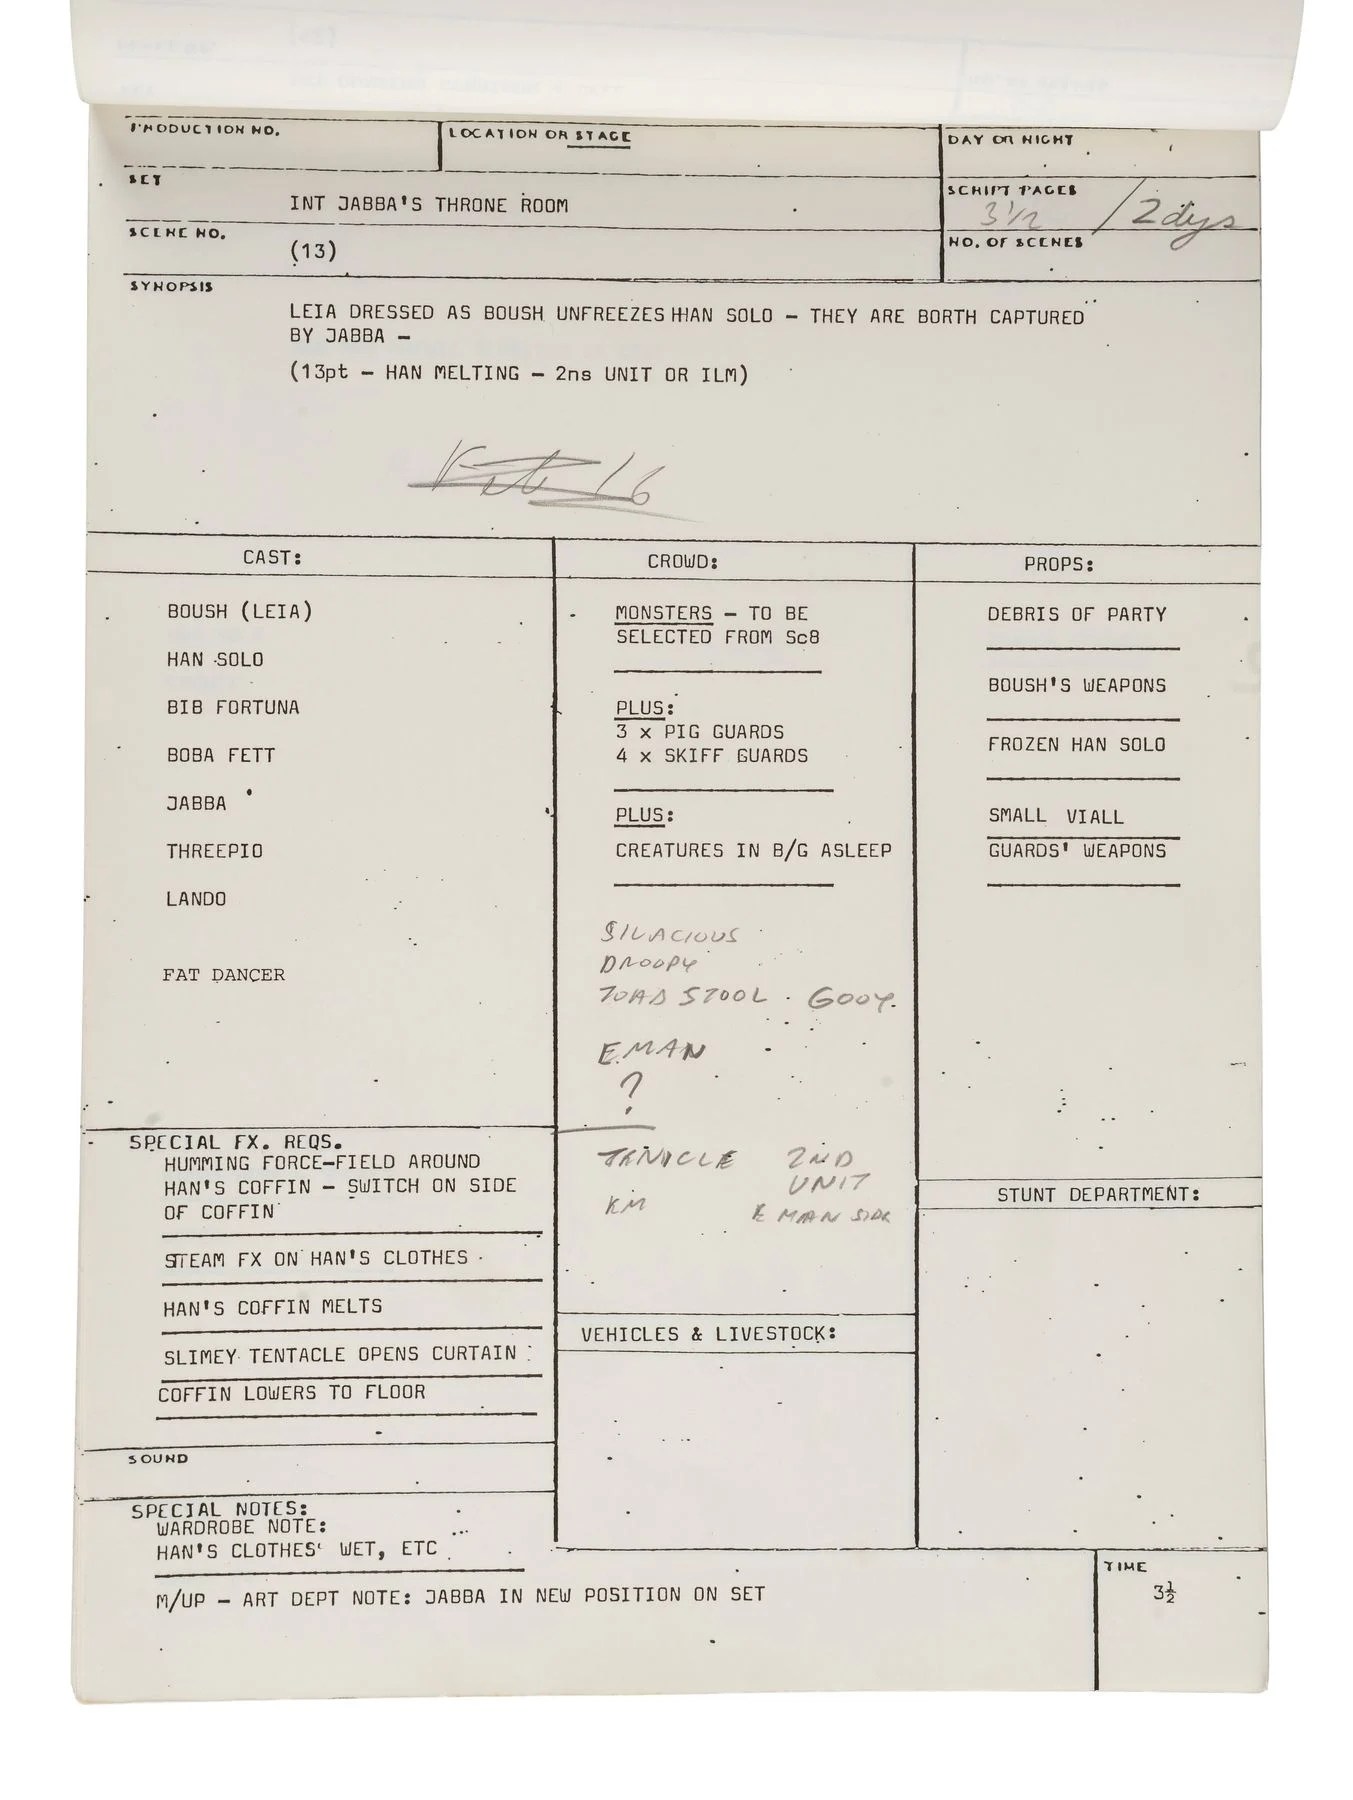 PRODUCTION NO.
LOCATION OR STAGE
DAY OR NIGHT
SET
INT JABBA'S THRONE ROOM
SCRIPT PAGES
3 1/2 / 2 dys
SCENE NO.
(13)
NO. OF SCENES
SYNOPSIS
LEIA DRESSED AS BOUSH UNFREEZES HAN SOLO – THEY ARE BORTH CAPTURED
BY JABBA –
(13pt – HAN MELTING – 2ns UNIT OR ILM)
16
CAST:
BOUSH (LEIA)
HAN SOLO
BIB FORTUNA
BOBA FETT
JABBA
THREEPIO
LANDO
FAT DANCER
CROWD:
MONSTERS – TO BE
SELECTED FROM Sc8
PLUS:
3 x PIG GUARDS
4 x SKIFF GUARDS
PLUS:
CREATURES IN B/G ASLEEP
SILACIOUS
DROOPY
TOAD STOOL . GOOY.
E.MAN
?
TENICLE 2ND
UNIT
KM E MAN SIDE
PROPS:
DEBRIS OF PARTY
BOUSH'S WEAPONS
FROZEN HAN SOLO
SMALL VIALL
GUARDS' WEAPONS
SPECIAL FX. REQS.
HUMMING FORCE–FIELD AROUND
HAN'S COFFIN – SWITCH ON SIDE
OF COFFIN
STEAM FX ON HAN'S CLOTHES
HAN'S COFFIN MELTS
SLIMEY TENTACLE OPENS CURTAIN
COFFIN LOWERS TO FLOOR
STUNT DEPARTMENT:
VEHICLES & LIVESTOCK:
SOUND
SPECIAL NOTES:
WARDROBE NOTE:
HAN'S CLOTHES' WET, ETC
M/UP – ART DEPT NOTE: JABBA IN NEW POSITION ON SET
TIME
3½